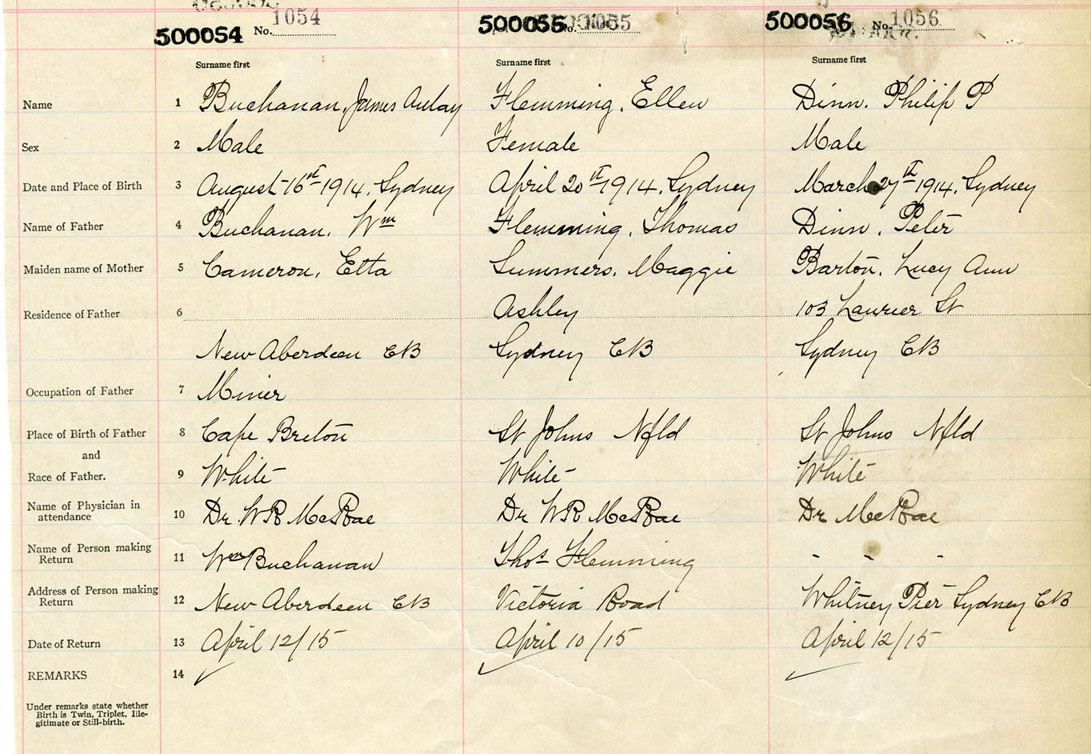 500054 No. 1054 500055 No. 1055 500056 No. 1056
Surname first Surname first Surname first
Name 1 Buchanan, James Aulay Flemming, Ellen Dinn, Philip P
Sex 2 Male Female Male
Date and Place of Birth 3 August 16th 1914, Sydney April 20th 1914, Sydney March 27th 1914, Sydney
Name of Father 4 Buchanan, Wm Flemming, Thomas Dinn, Peter
Maiden name of Mother 5 Cameron, Etta Summers, Maggie Barton, Lucy Ann
Residence of Father 6 Ashley 103 Laurier St
New Aberdeen CB Sydney CB Sydney CB
Occupation of Father 7 Miner
Place of Birth of Father 8 Cape Breton St Johns Nfld St Johns Nfld
and
Race of Father. 9 White White White
Name of Physician in
attendance 10 Dr. WR McRae Dr WR McRae Dr McRae
Name of Person making
Return 11 Wm Buchanan Thos Flemming " " "
Address of Person making
Return 12 New Aberdeen CB Victoria Road Whitney Pier Sydney CB
Date of Return 13 April 12/15 April 10/15 April 12/15
REMARKS 14
Under remarks state whether
Birth is Twin, Triplet, Ille-
gitimate or Still-birth.